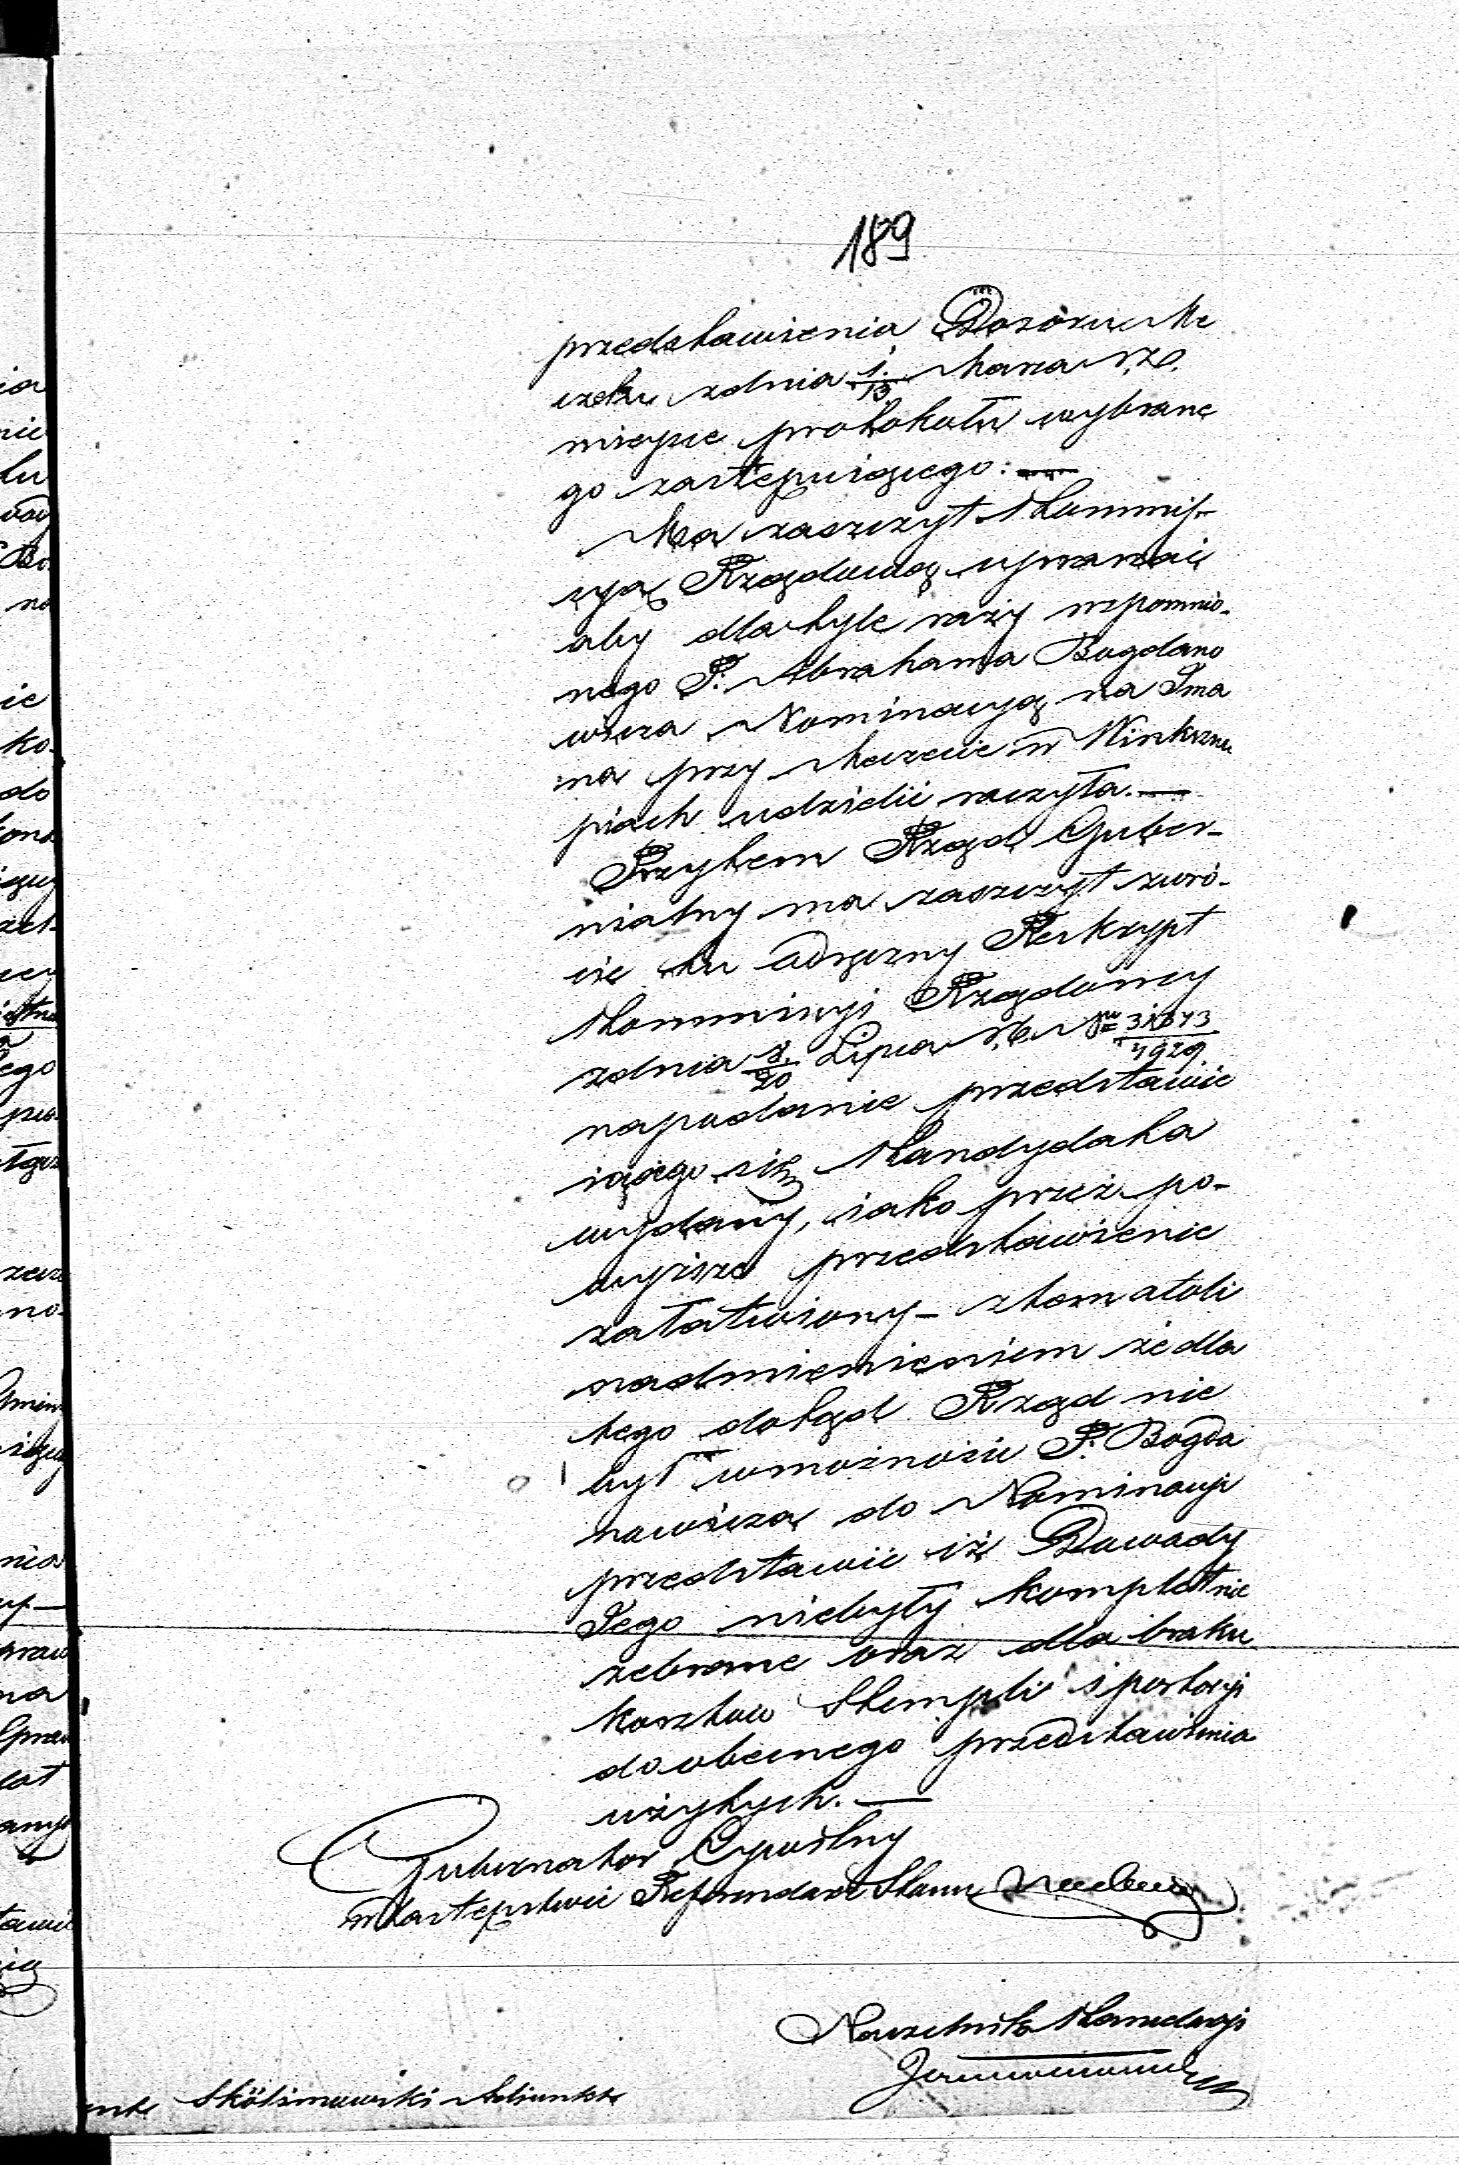 189
przedstawienia Dozoru Me
czetu zdnia 1/13 Marca r. z.
mieysce protokołu wybrane
go zastępuiącego: —
Ma zaszczyt Kommis-
syą Rządową upraszać
aby dla tyle razy wspomnio-
nego P. Abrahama Bogdano
wicza Nominacyą na Ima
ma przy Meczecie w Winksznu
piach udzielić raczyła. —
Przytem Rząd Guber-
nialny ma zaszczyt zwró-
cić tu odręczny Reskrypt
Kommissyi Rządowey
zdnia 8/20 Lipca r. b. N
4929
napodanie przedstawie
iącego się Kandydata
wydany, iako przez po-
wyższe przedstawienie
załatwiony – ztem atoli
nadmienieniem że dla
tego dotąd Rząd nie
był wmożności P. Bogda
nowicza do Nominacyi
przedstawić iż Dowody
Jego niebyły kompletnie
zebrane oraz dla braku
kosztów Stempli i portoryi
do obecnego przedstawienia
użytych. —
Gubernator Cywilny
w Zastępstwie Referendarz Stanu
Naczelnik Kancelaryi
Skolimowski Adiunkt